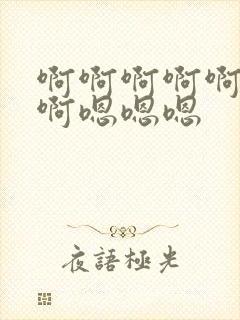 啊啊啊啊啊
啊嗯嗯嗯
夜語極光